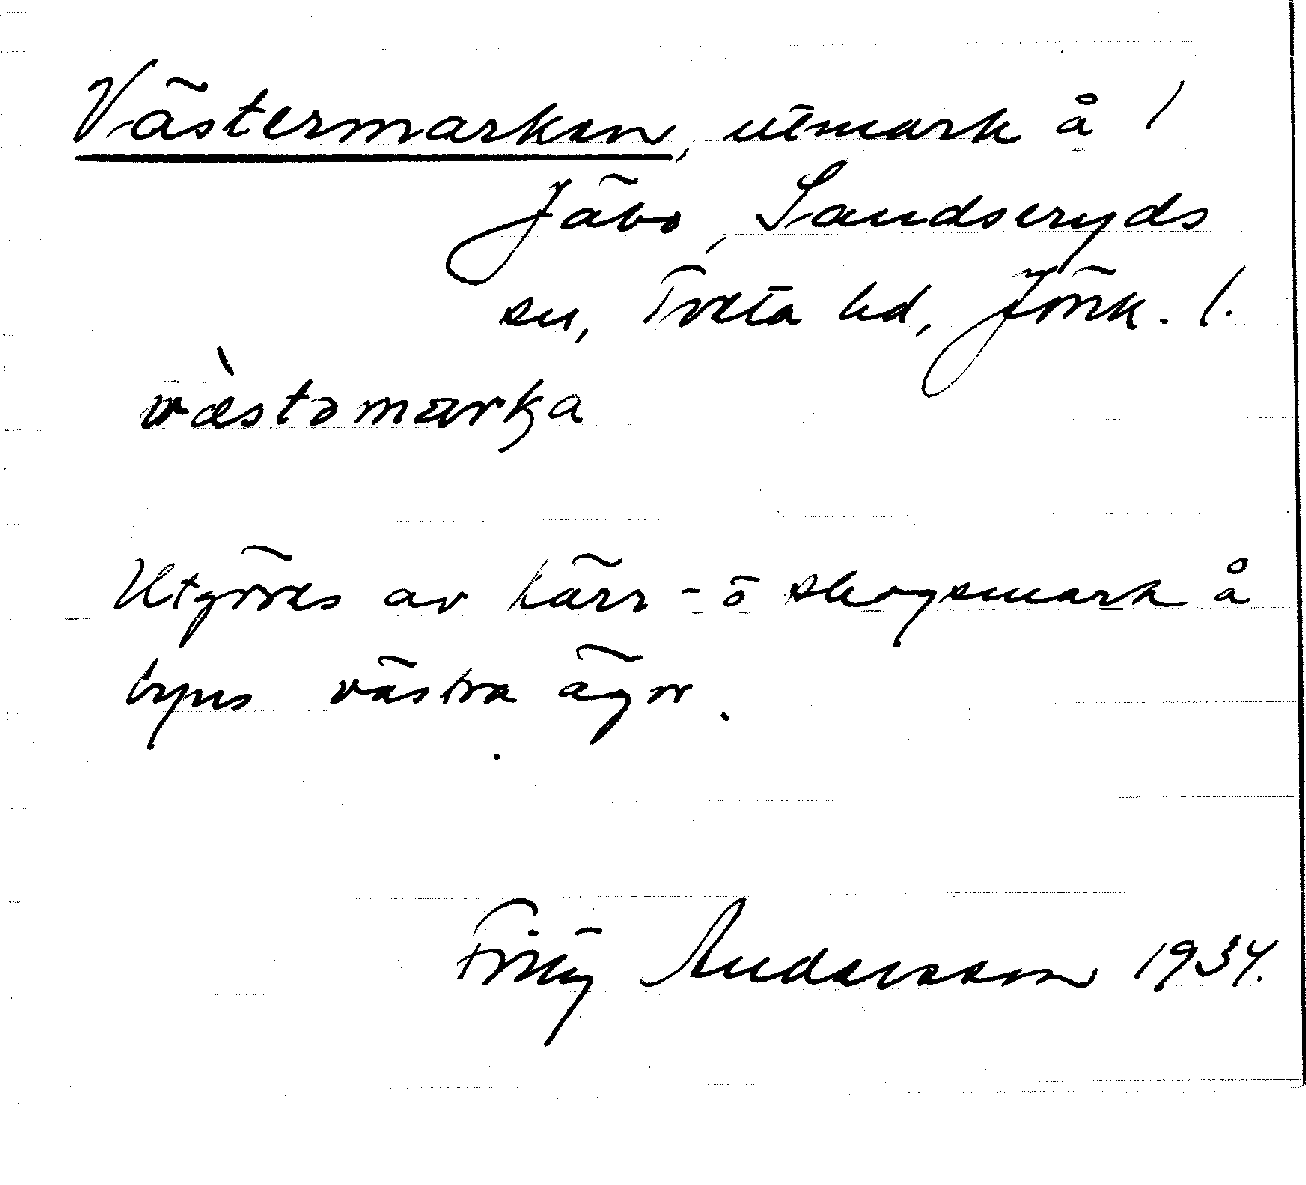 Västermarken, utmark å /
Jäbo, Sandseryds
sn, Tveta hd, Jönk. l.
wæstəmarka
Utgöres av kärr- o skogsmark å
byns västra ägor.
Andersson 1934.